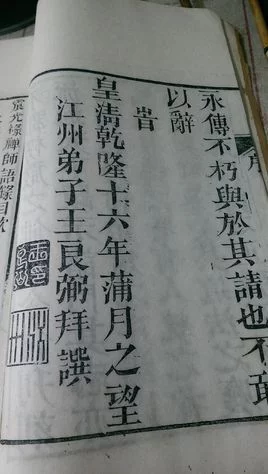 永傳不朽與於其請也不
以辭
旹
皇清乾隆十六年蒲月之望
江州弟子王良弼拜譔
禪師語錄目次